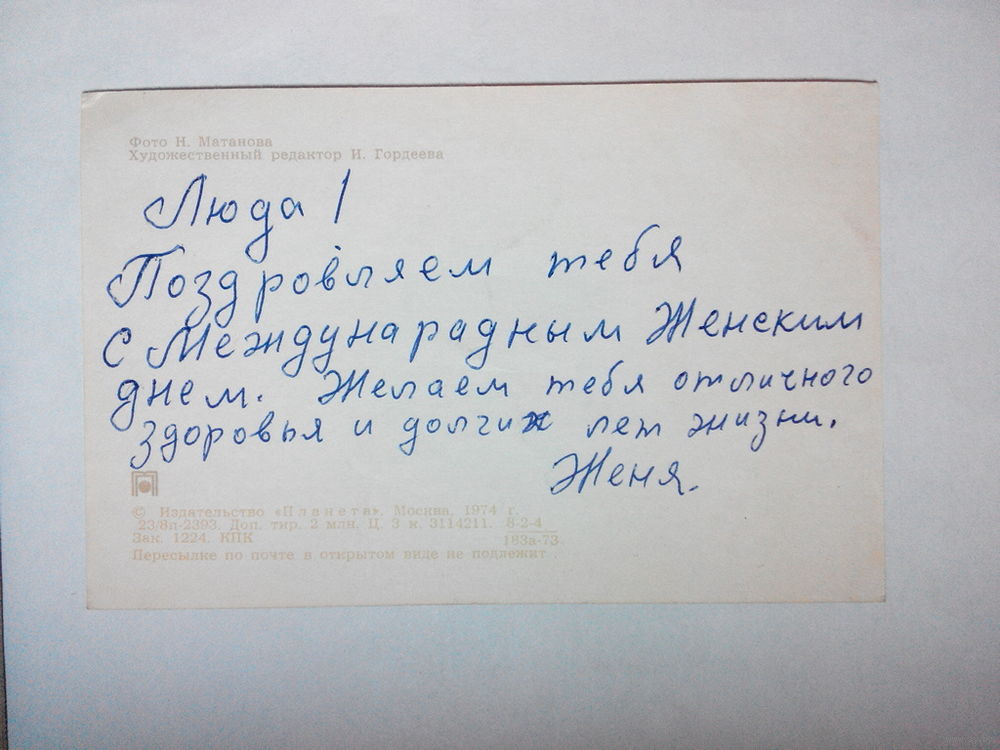 Фото Н. Матанова
Художественный редактор И. Гордеева
Люда!
Поздровляем тебя
с Международным Женским
днем. Желаем тебя отличного
здоровья и долгих лет жизни.
Женя.
© Издательство «Планета». Москва, 1974 г.
23/8п-2393. Доп. тир. 2 млн. Ц. 3 к. 3114211. 8-2-4
Зак. 1224. КПК 183а-73
Пересылке по почте в открытом виде не подлежит